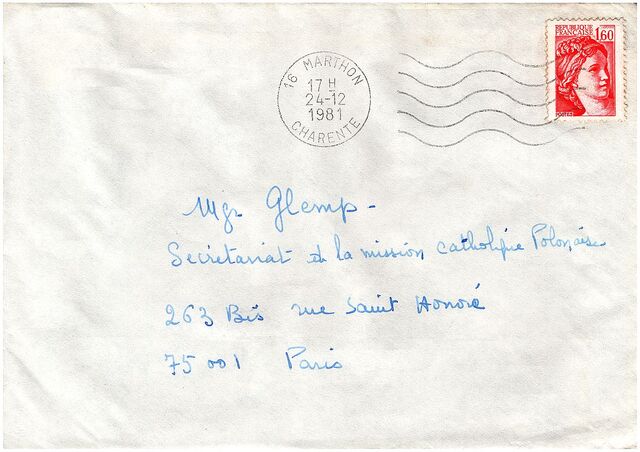 REPUBLIQUE
FRANÇAISE 1,60
16 MARTHON
17 H
24-12
1981
CHARENTE
Mgr Glemp -
Secrétariat de la mission catholique Polonaise
263 Bis rue Saint Honoré
75 001 Paris